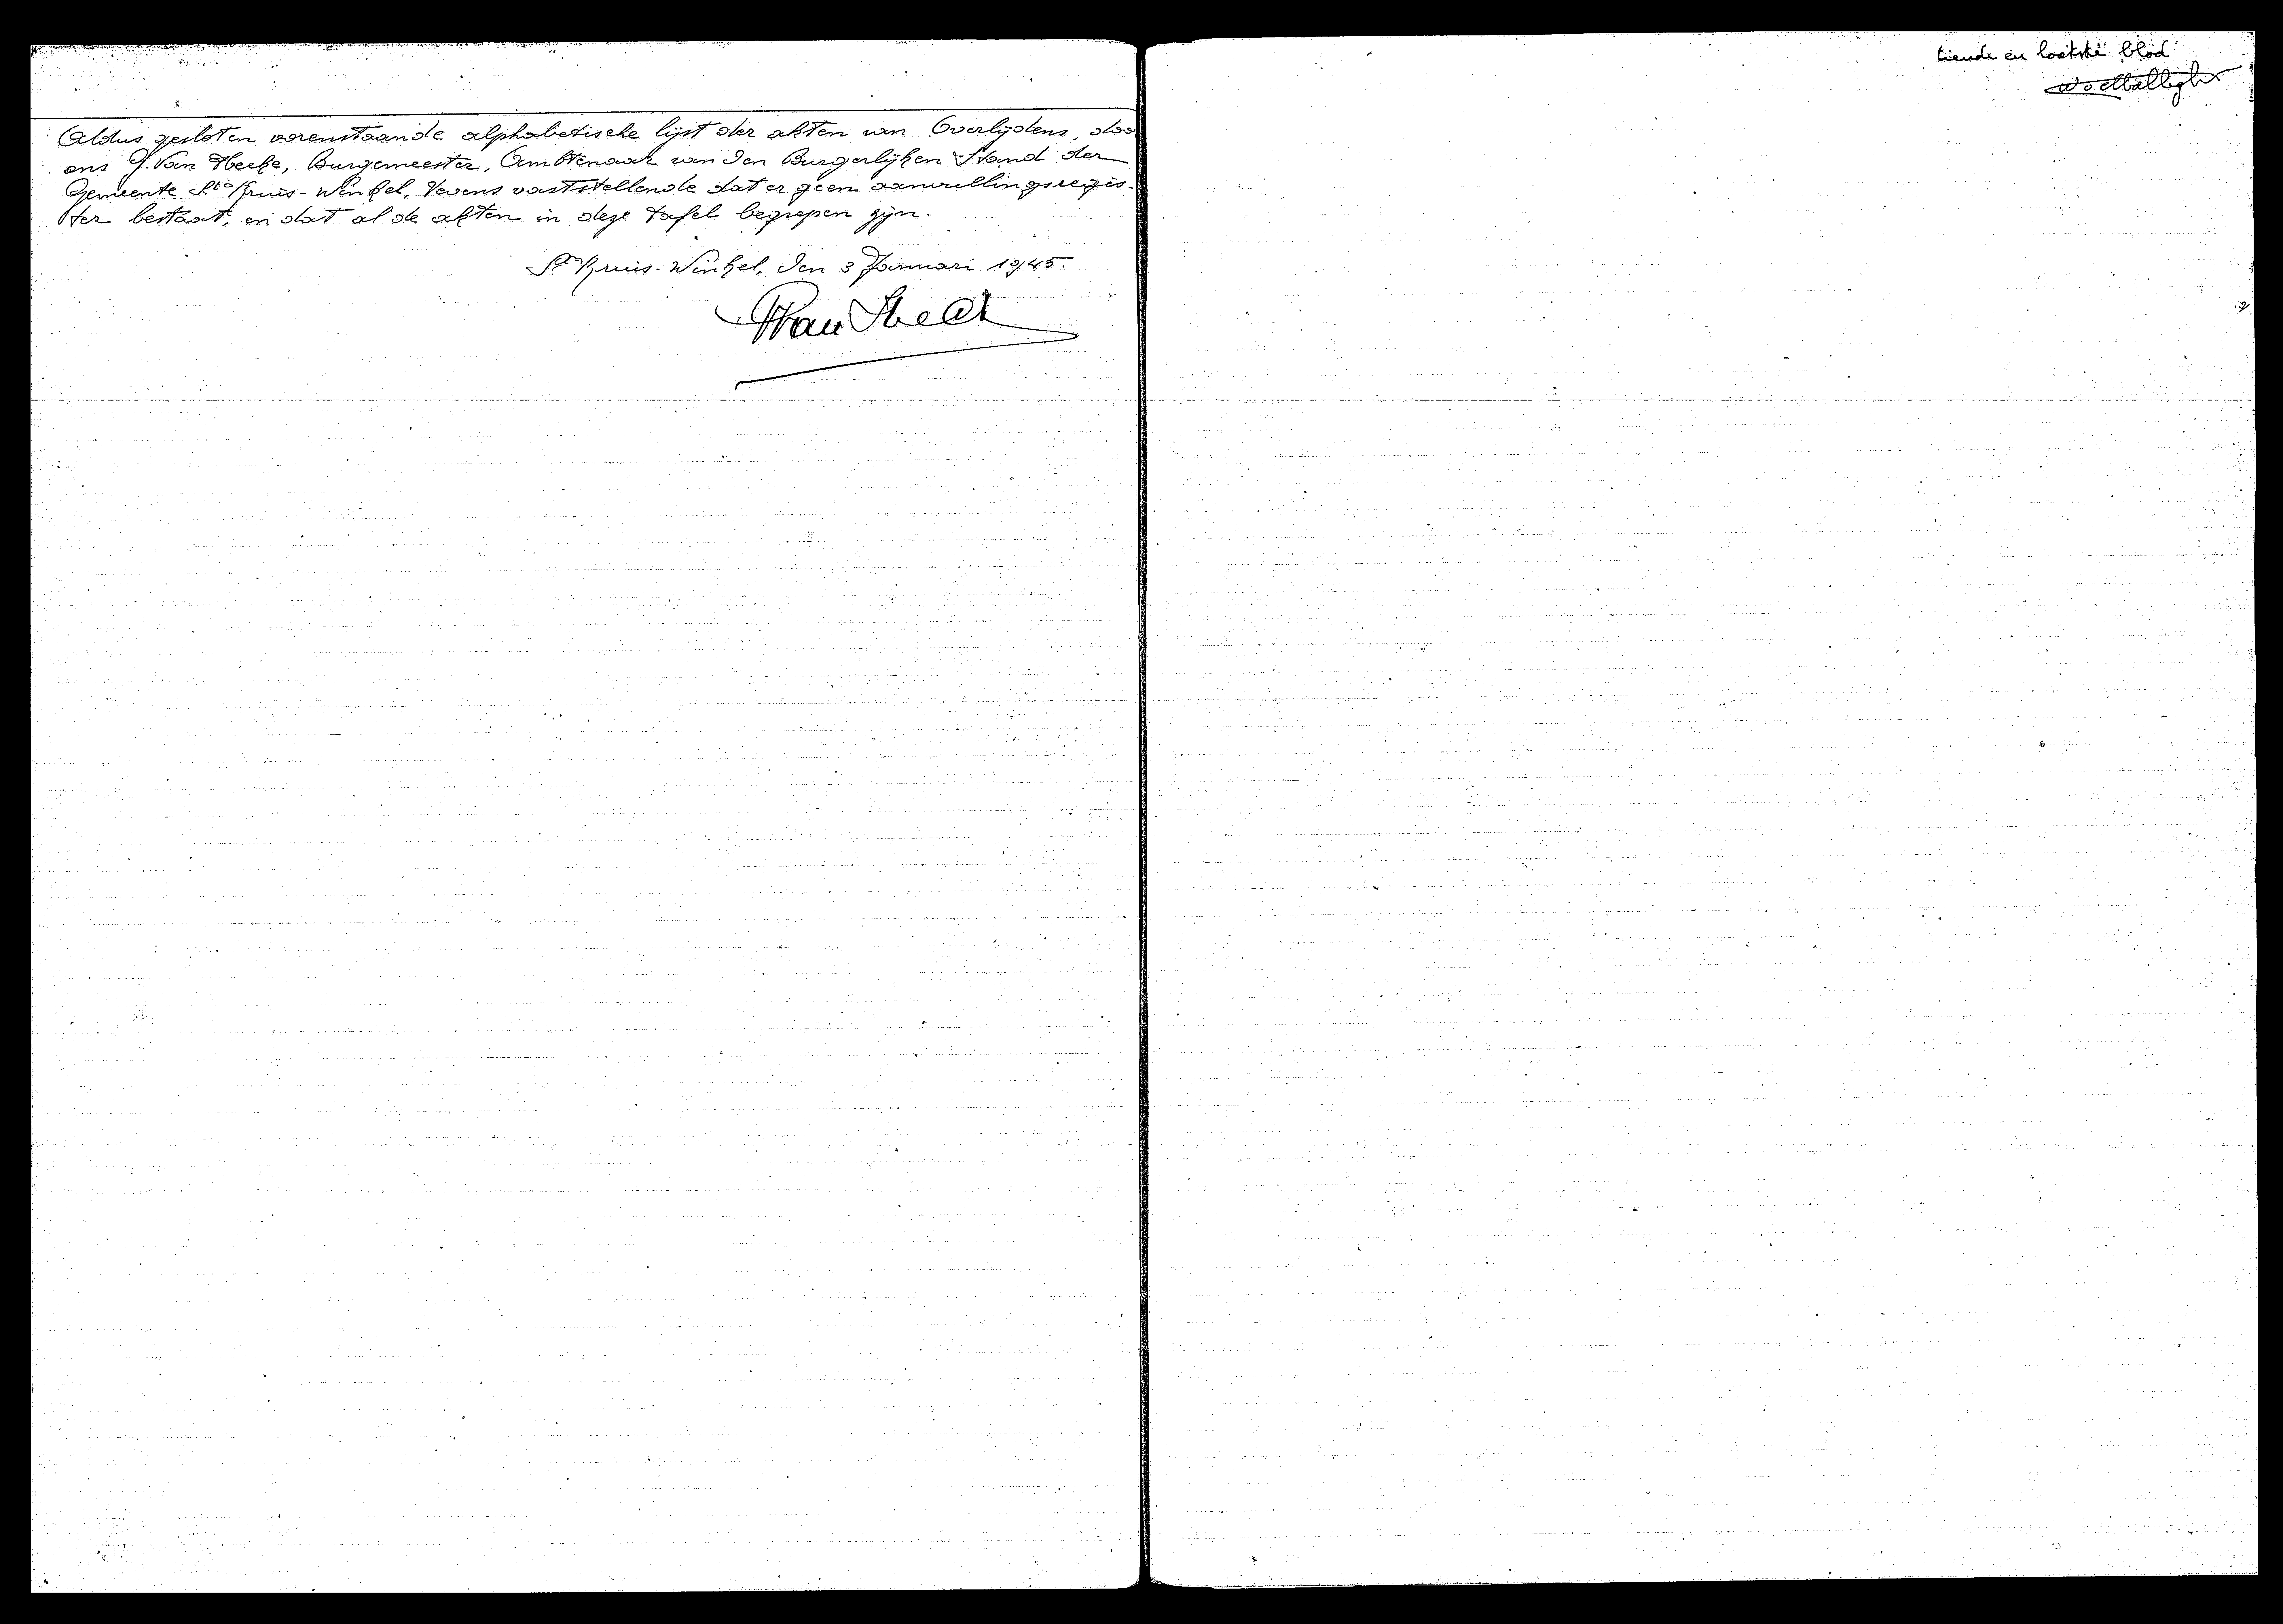 Aldus gesloten vorenstaande alphabetische lijst der akten van Overlijdens, doo
ons J. Van Hecke, Burgemeester, Ambtenaar van den Burgerlijken Stand der
Gemeente Ste Kruis-Winkel. Tevens vaststellende dat er geen aanvullingsregis-
ter bestaat, en dat al de akten in deze tafel begrepen zijn.
Ste Kruis-Winkel, den 3 Januari 1945.
tiende en laatste blad